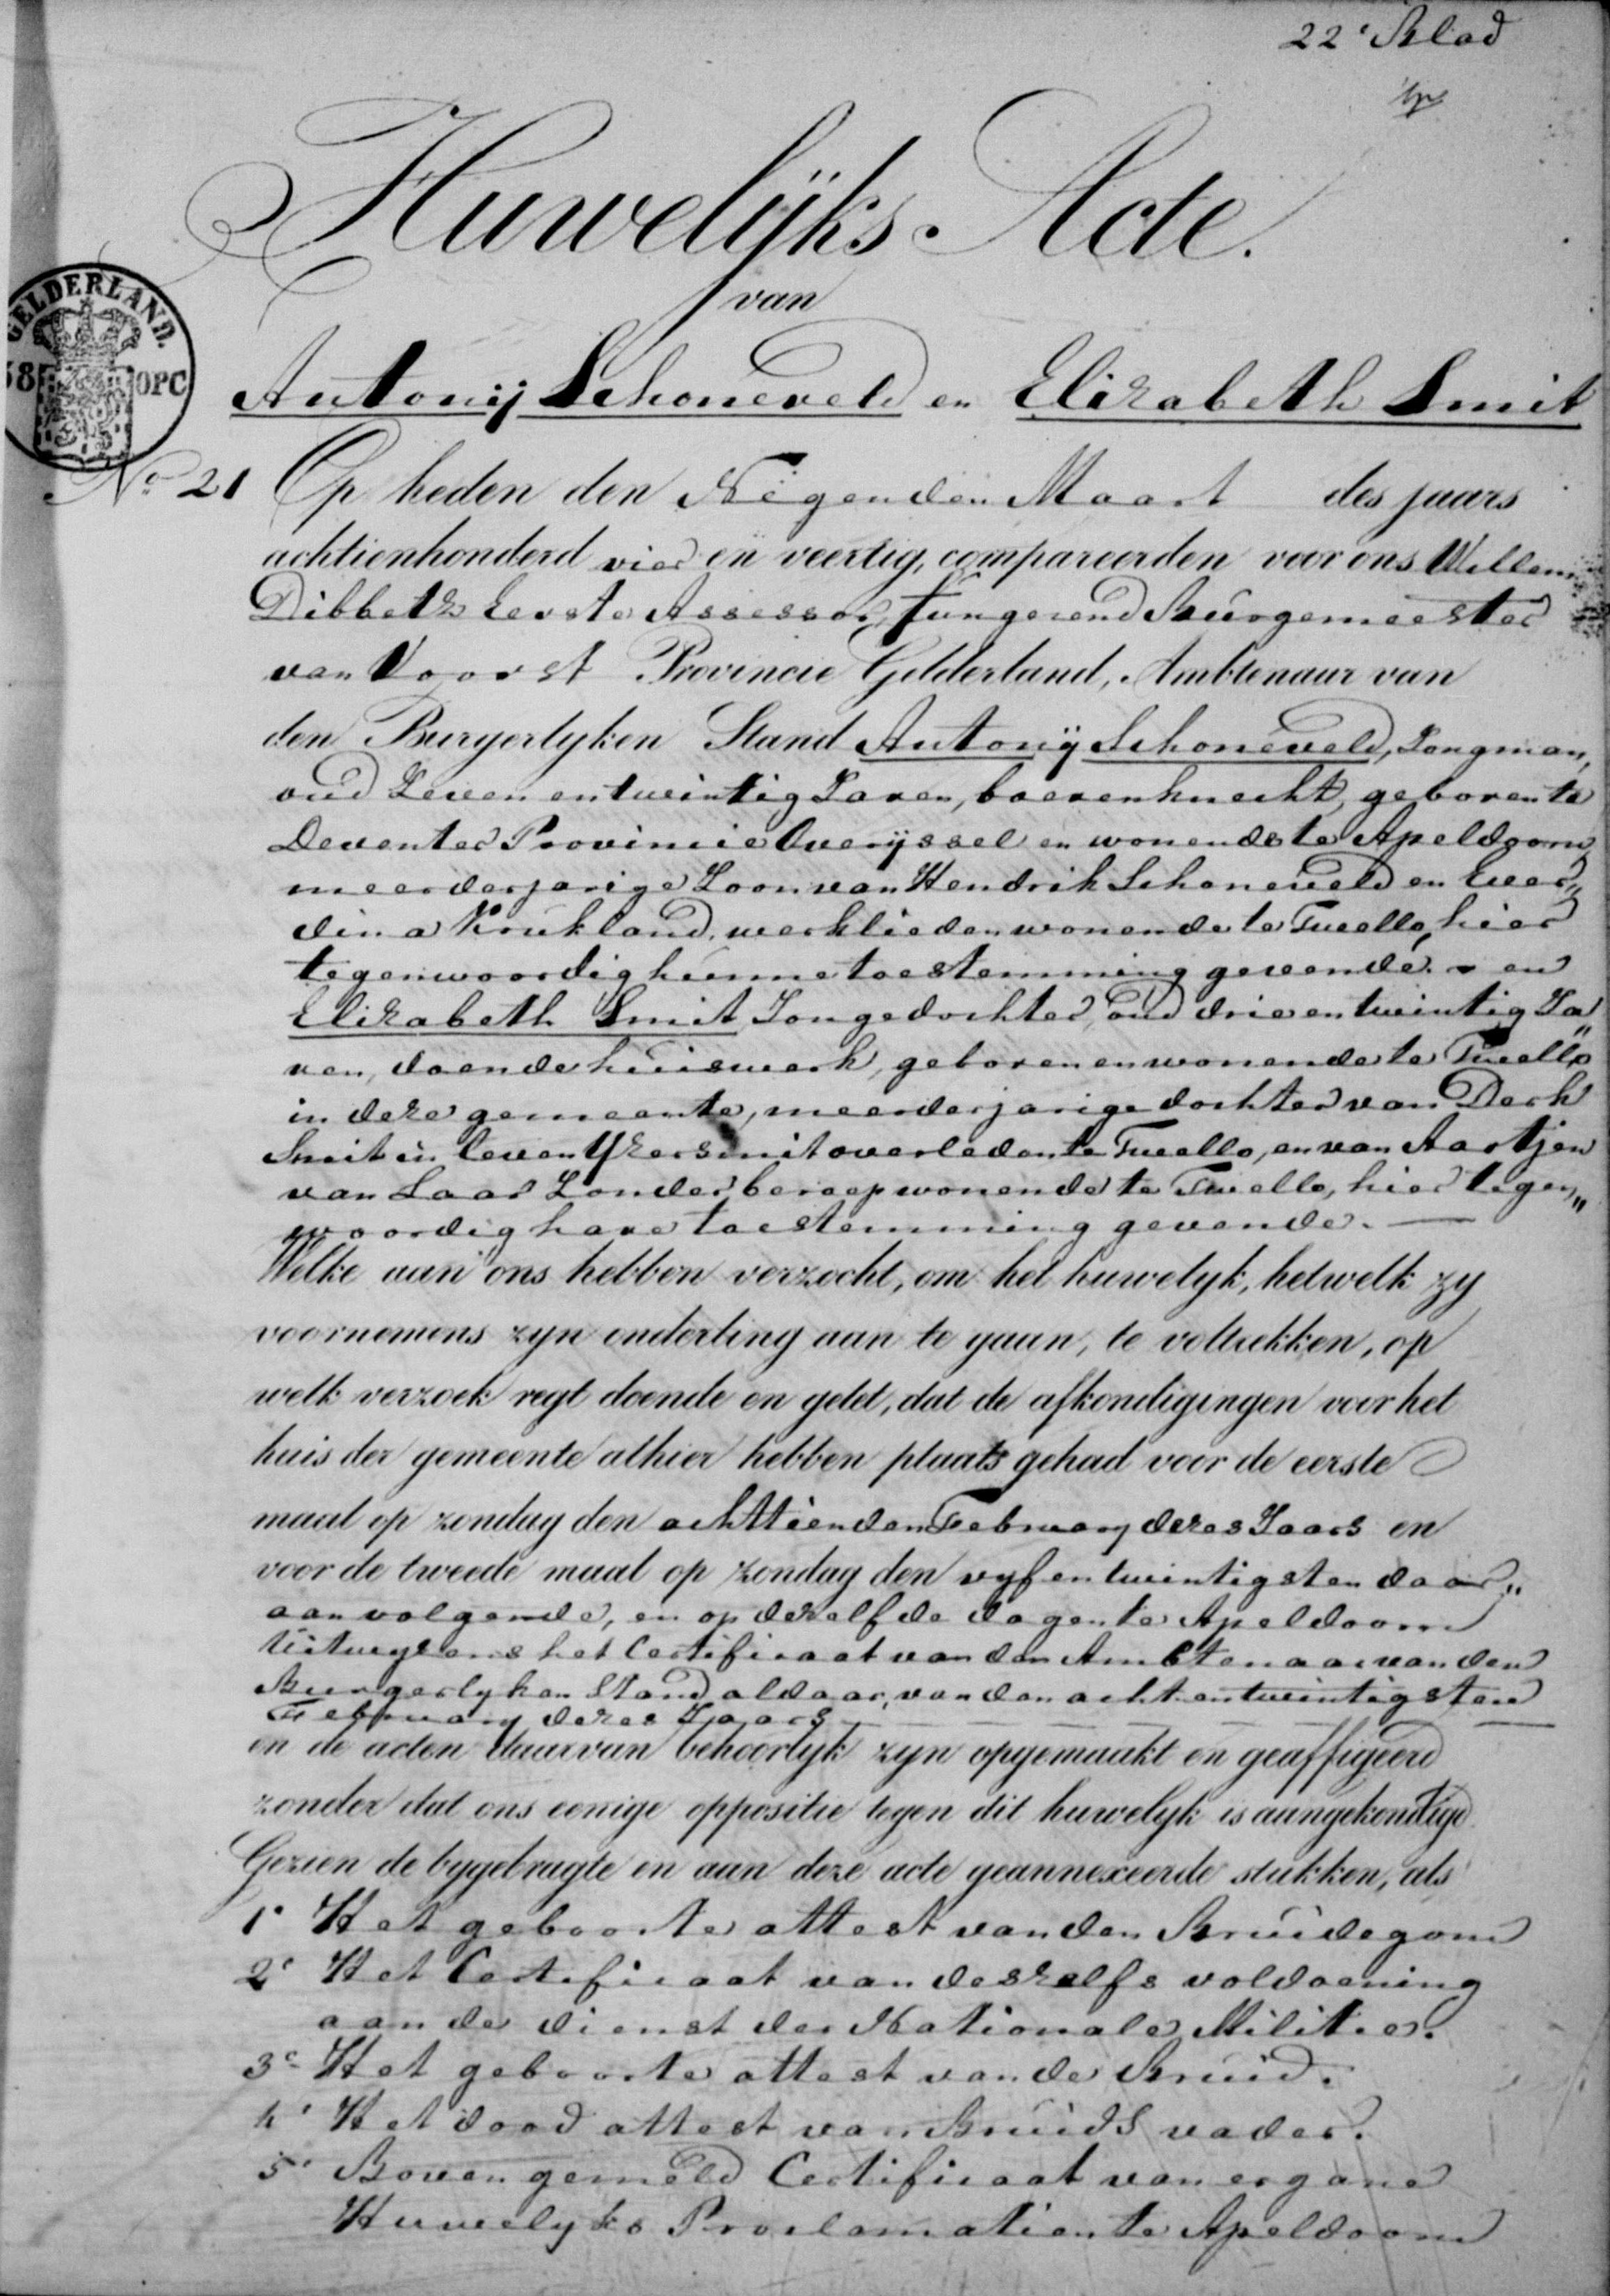 22e Blad
Huwelijks-Acte.
van
GELDERLAND.
38 OPC
Antonij Schoneveld en Elizabeth Smit
No. 21 Op heden den Negenden Maart des jaars
achtienhonderd vier en veertig, compareerden voor ons Willem
Dibbetz Eerste Assessor, fungerend Burgemeester
van Voorst Provincie Gelderland, Ambtenaar van
den Burgerlyken Stand Antonij Schoneveld, Jongman,
oud Zeven en twintig Jaren, boerenknecht, geboren te
Deventer Provincie Overijssel en wonende te Apeldoorn,
meerderjarige Zoon van Hendrik Schoneveld en Ever„
dina Krukland, werklieden wonende te Twello, hier
tegenwoordig hunne toestemming gevende. - en
Elizabeth Smit Jongedochter, oud drie en twintig Ja„
ren, doende huiswerk, geboren en wonende te Twello
in deze gemeente, meerderjarige dochter van Derk
Smit in leven Yzersmit overleden te Twello, en van Aartjen
van Laar Zonder beroep wonende te Twello, hier tegen„
woordig hare toestemming gevende. —
Welke aan ons hebben verzocht, om het huwelyk, hetwelk zy
voornemens zyn onderling aan te gaan, te voltrekken, op
welk verzoek regt doende en gelet, dat de afkondigingen voor het
huis der gemeente alhier hebben plaats gehad voor de eerste
maal op zondag den achttienden February dezes Jaars en
voor de tweede maal op zondag den vyf en twintigsten daar„
aan volgende, en op dezelfde dagen te Apeldoorn
Uitwyzens het Certificaat van den Ambtenaar van den
Burgerlyken Stand aldaar, van den acht en twintigsten
February dezes Jaars —
en de acten daarvan behoorlyk zyn opgemaakt en geaffigeerd
zonder dat ons eenige oppositie tegen dit huwelyk is aangekondigd
Gezien de bygebragte en aan deze acte geannexeerde stukken, als
1e Het geboorte attest van den Bruidegom
2e Het Certificaat van deszelfs voldoening
aan de dienst der Nationale Militie.
3e Het geboorte attest van de Bruid.
4e Het dood attest van Bruids vader.
5e Bovengemeld Certificaat van ergane
Huwelyks Proclamatien te Apeldoorn